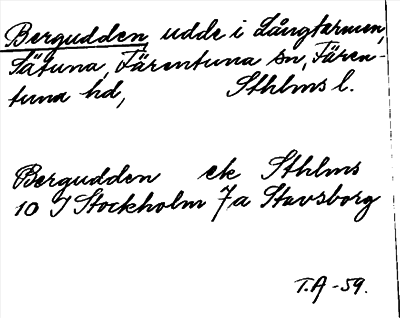 Bergudden udde i Långtarmen,
Sätuna, Färentuna sn, Fären-
tuna hd, Sthlms l.
Bergudden ek Sthlms
10 I Stockholm 7a Stavsborg
T.A -59.